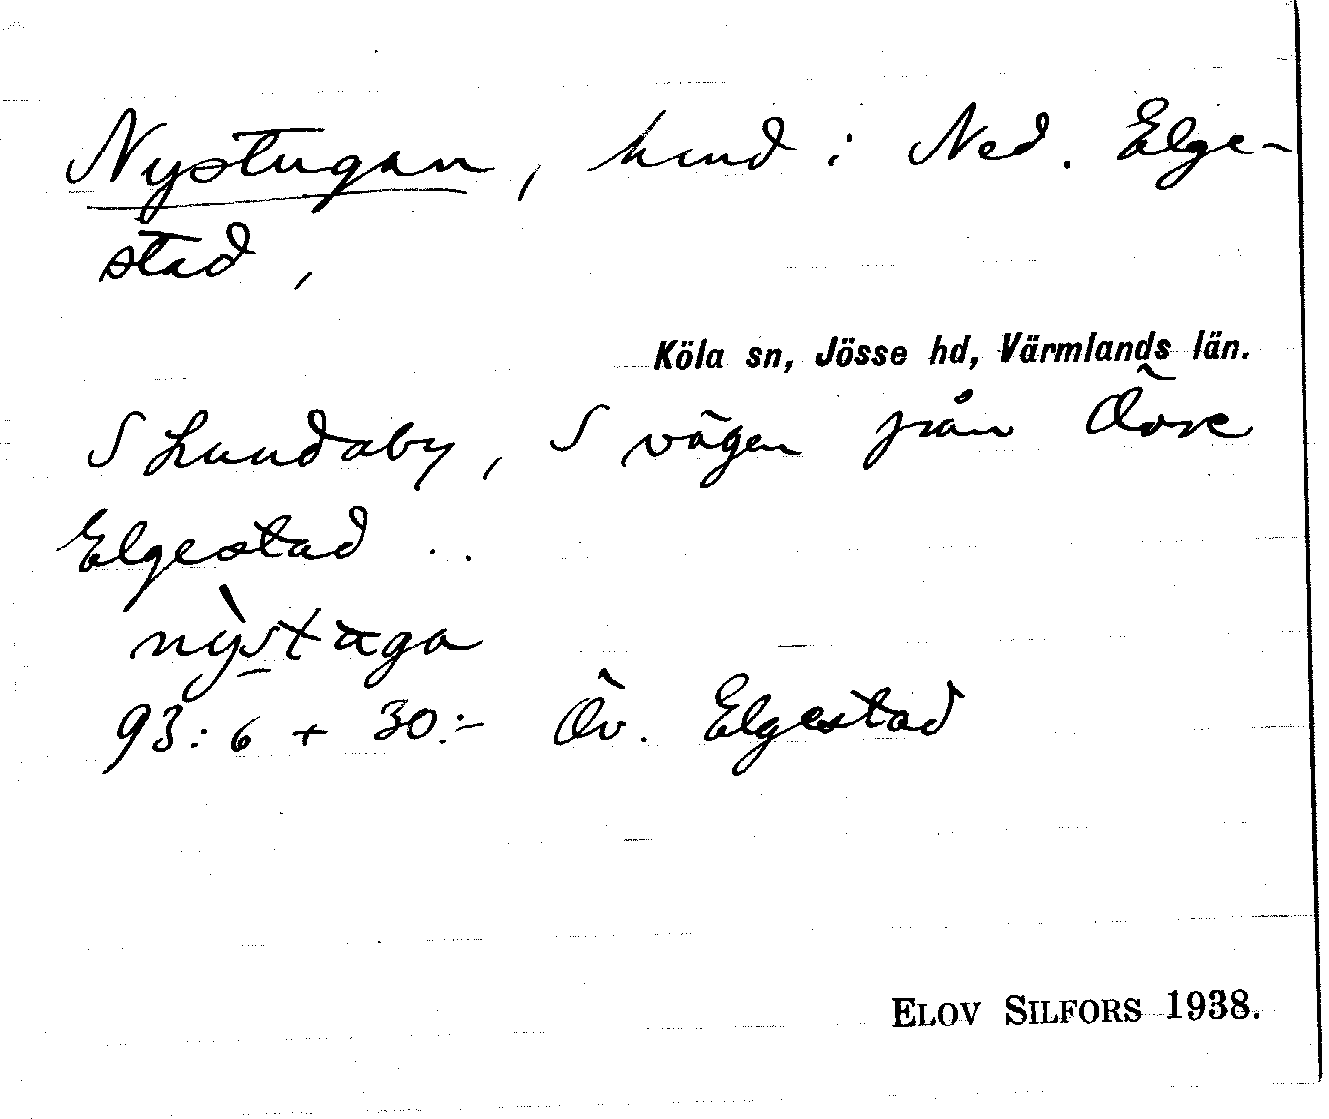 Nystugan, hmd i Ned. Elge-
stad,
Köla sn, Jösse hd, Värmlands län.
S Lundaby, S vägen från Övre
Elgestad ..
nỳstaga
93:6 + 30:- Öv. Elgestad
ELOV SILFORS 1938.